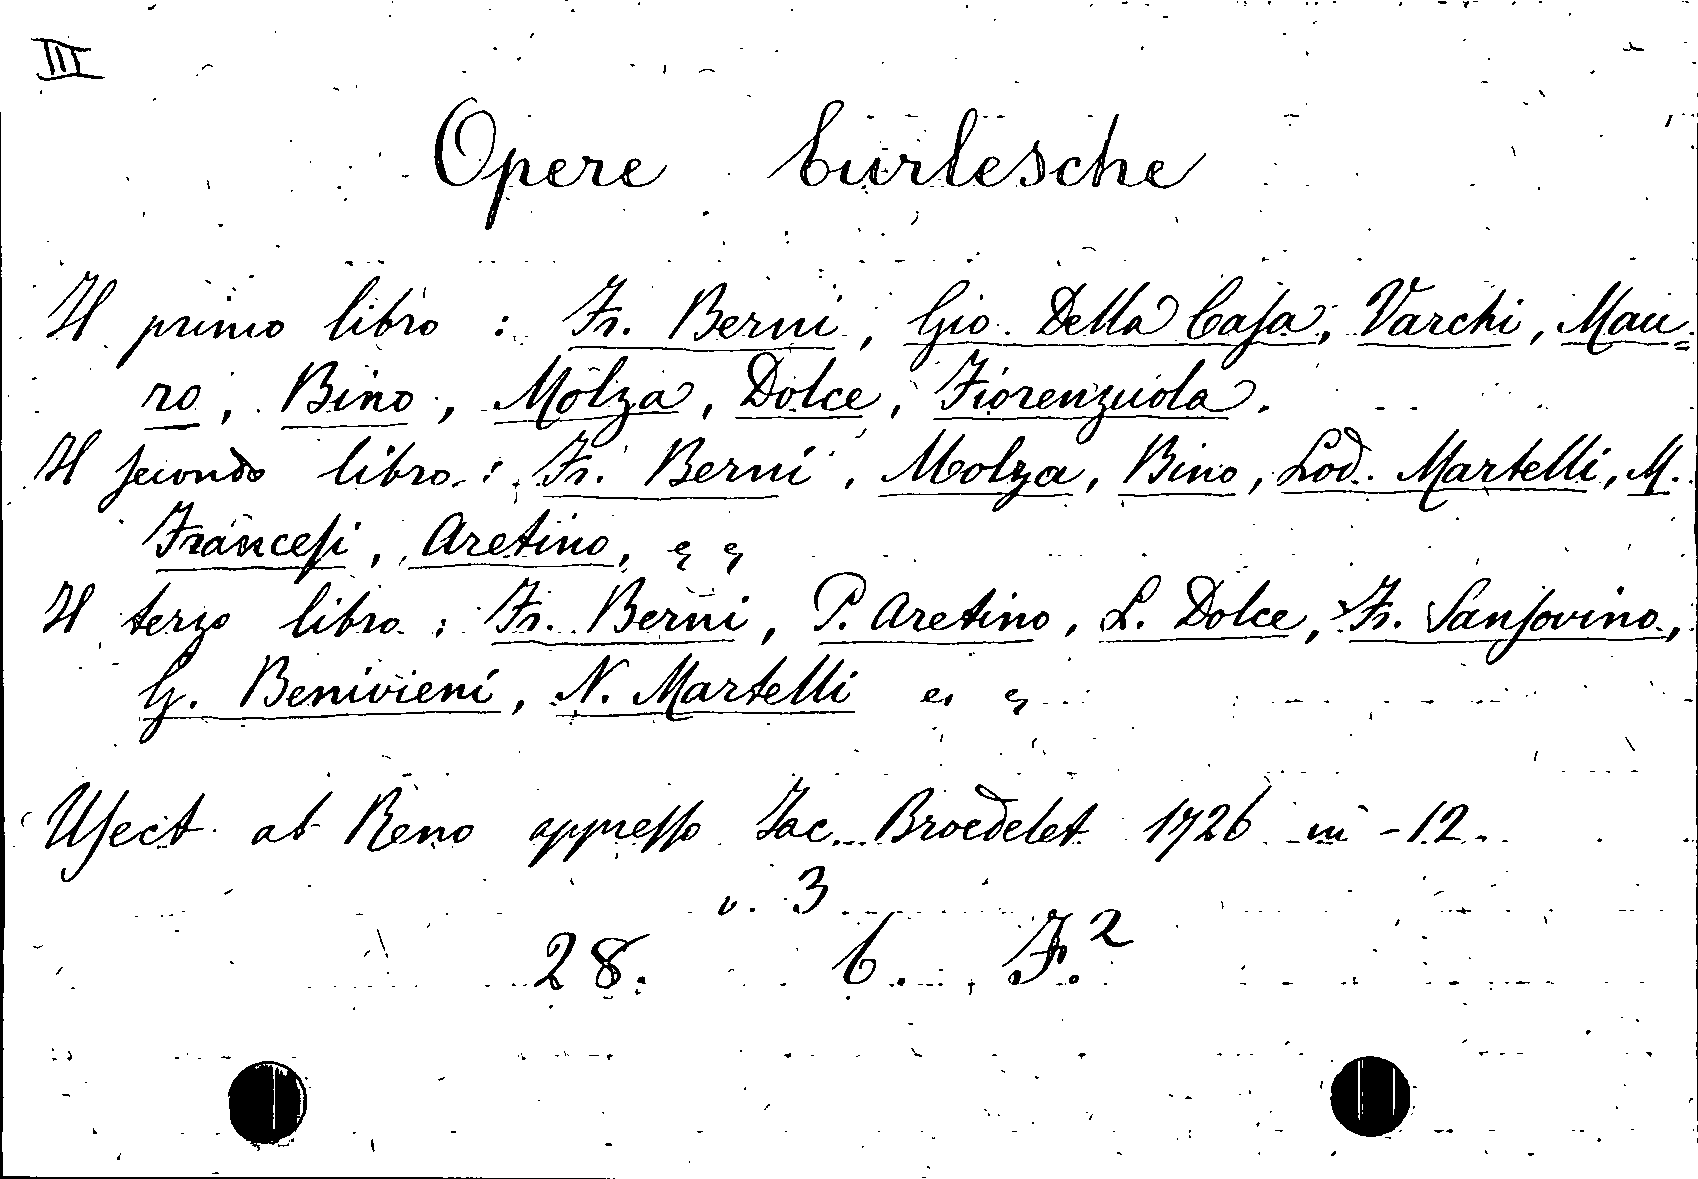 III
Opere burlesche
Il primo libro : Fr. Berni, Gio. Della Casa, Varchi, Mau=
ro, Bino, Molza, Dolce, Fiorenzuola.
Il secondo libro : Fr. Berni, Molza, Bino, Lod. Martelli, M.
Francesi, Aretino,
Il terzo libro : Fr. Berni, P. Aretino, L. Dolce, Fr. Sansovino,
G. Benivieni, N. Martelli
Usect al Reno appresso Jac. Broedelet 1726 in -12.
v. 3
28. b. F.²